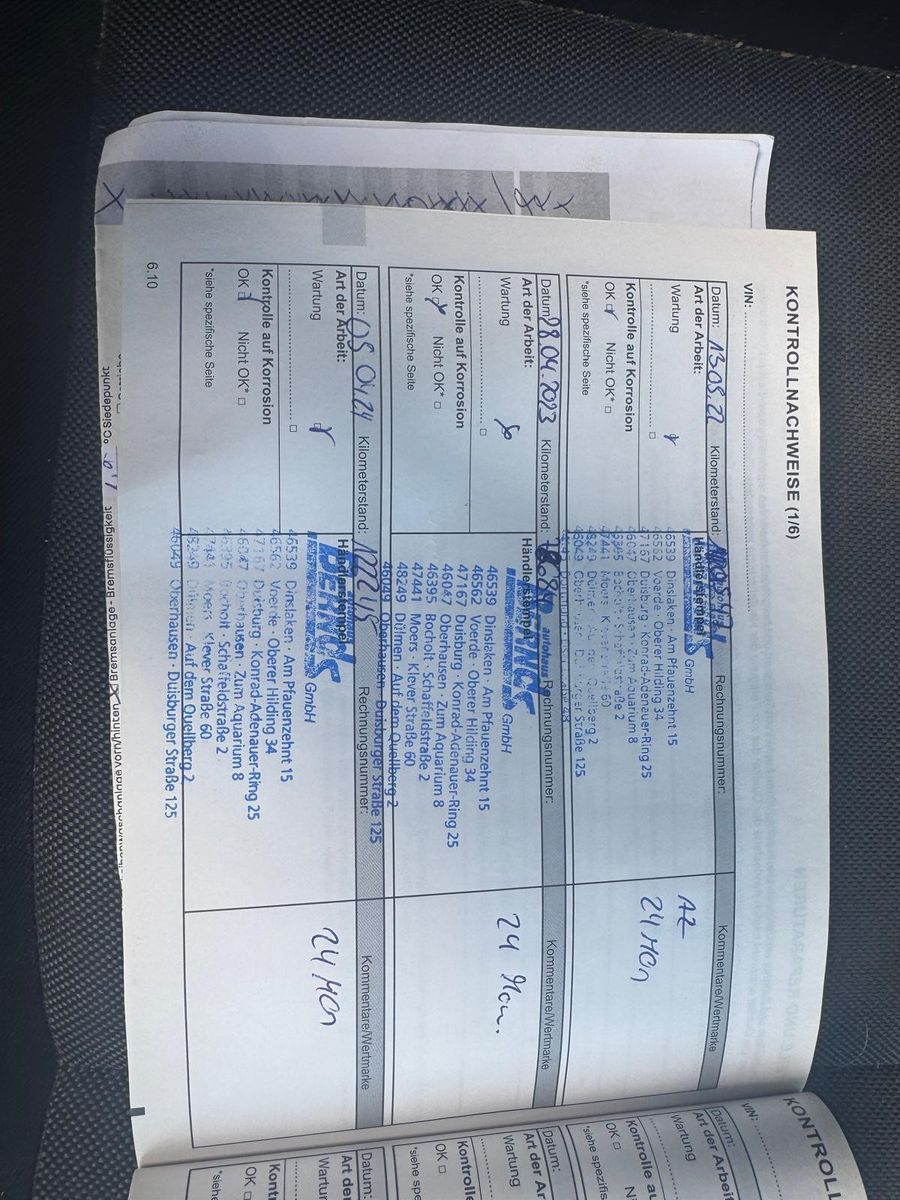 KONTROLLNACHWEISE (1/6)
VIN:
Datum: 13.05.22 Kilometerstand: Rechnungsnummer: Kommentare/Wertmarke
Art der Arbeit: Händlerstempel
Wartung
Kontrolle auf Korrosion
OK Nicht OK* □
*siehe spezifische Seite
GmbH
46539 Dinslaken · Am Pfauenzehnt 15
46562 Voerde · Oberer Hilding 34
47167 Duisburg · Konrad-Adenauer-Ring 25
46047 Oberhausen · Zum Aquarium 8
46395 Bocholt · Schaffeldstraße 2
47441 Moers · Klever Straße 60
48249 Dülmen · Auf dem Quellberg 2
46049 Oberhausen · Duisburger Straße 125
AZ
24 MOn
Datum: 28.04.2023 Kilometerstand: Rechnungsnummer: Kommentare/Wertmarke
Art der Arbeit: Händlerstempel
Wartung
Kontrolle auf Korrosion
OK Nicht OK* □
*siehe spezifische Seite
autohaus
GmbH
46539 Dinslaken · Am Pfauenzehnt 15
46562 Voerde · Oberer Hilding 34
47167 Duisburg · Konrad-Adenauer-Ring 25
46047 Oberhausen · Zum Aquarium 8
46395 Bocholt · Schaffeldstraße 2
47441 Moers · Klever Straße 60
48249 Dülmen · Auf dem Quellberg 2
46049 Oberhausen · Duisburger Straße 125
24 Mon.
Datum: 05.04.24 Kilometerstand: Rechnungsnummer: Kommentare/Wertmarke
Art der Arbeit: Händlerstempel
Wartung
Kontrolle auf Korrosion
OK Nicht OK* □
*siehe spezifische Seite
GmbH
46539 Dinslaken · Am Pfauenzehnt 15
46562 Voerde · Oberer Hilding 34
47167 Duisburg · Konrad-Adenauer-Ring 25
46047 Oberhausen · Zum Aquarium 8
46395 Bocholt · Schaffeldstraße 2
47441 Moers · Klever Straße 60
48249 Dülmen · Auf dem Quellberg 2
46049 Oberhausen · Duisburger Straße 125
24 MOn
6.10
Bremsanlage - Bremsflüssigkeit
°C Siedepunkt
KONTROL
VIN:
Datum:
Art der Arbei
Wartung
Kontrolle au
OK □
*siehe spezifis
Datum:
Art der Ar
Wartung
Kontroll
OK □
*siehe spe
Datum:
Art de
Wartur
Kontr
OK □
*siehe